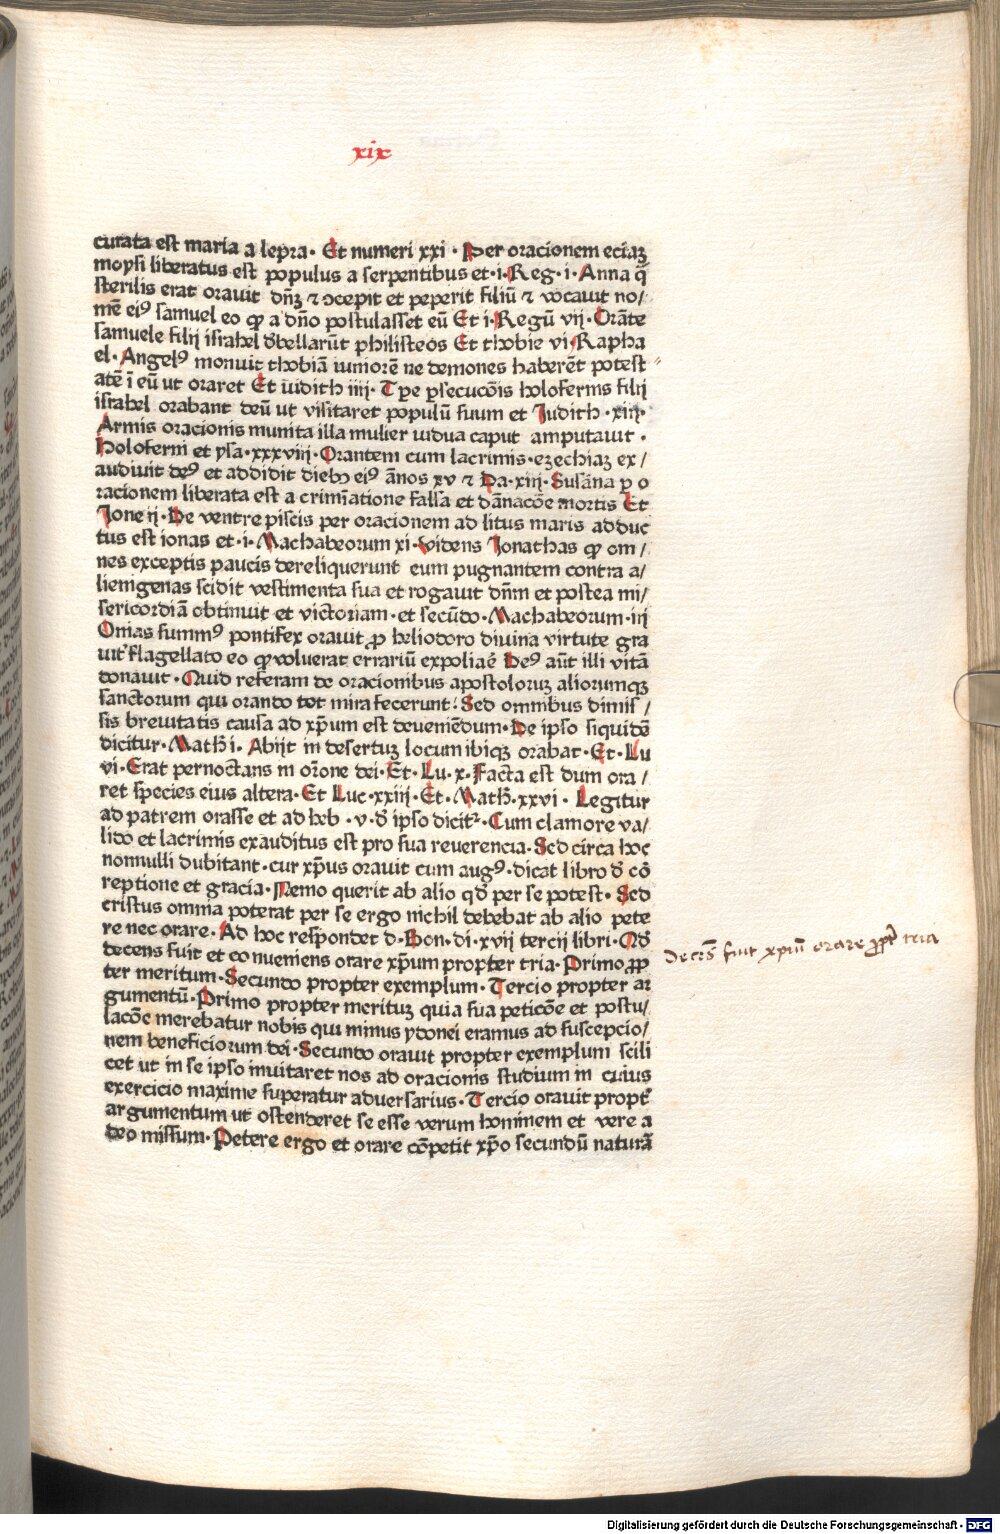 xix
curata est maria a lepra. Et numeri xxi. Per oracionem eciaꝫ
moysi liberatus est populus a serpentibus et.i.Reg.i.Anna q̄
sterilis erat oravit dn̄ꝫ ⁊ ↄcepit et peperit filiū ⁊ vocavit no/
mē eiꝰ samuel eo ꝙ a dn̄o postulasset eū Et i.Regū vij.Orāte
samuele filij israhel d̄bellarūt philisteos Et thobie vi.Rapha
el.Angelꝰ monuit thobiā iuniorē ne demones haberēt potest
atē ī eū ut oraret Et iudith iiij. Tꝑe ꝑsecucōis holofernis filij
israhel orabant deū ut visitaret populū suum et Judith.xiij.
Armis oracionis munita illa mulier vidua caput amputavit.
Holoferni et ysa.xxxviij.Orantem cum lacrimis.ezechiaꝫ ex/
audivit deꝰ et addidit diebꝫ eiꝰ ānos xv ⁊ Da.xiij.Susāna p o
racionem liberata est a crimīatione falsa et dānacōe mortis Et
Jone ij.De ventre piscis per oracionem ad litus maris adduc
tus est ionas et.i.Machabeorum xi.Videns Jonathas ꝙ om/
nes exceptis paucis dereliquerunt eum pugnantem contra a/
liemgenas scidit vestimenta sua et rogavit dn̄m et postea mi/
sericordiā obtinuit et victoriam.et secūdo.Machabeorum.iij
Onias summꝰ pontifex oravit ꝓ heliodoro divina virtute gra
vit̄ flagellato eo ꝙ voluerat errariū expoliaē Deꝰ aūt illi vitā
donavit.Quid referam de oracionibus apostoloruꝫ aliorumqꝫ
sanctorum qui orando tot mira fecerunt: Sed omnibus dimis/
sis brevitatis causa ad xp̄um est deveniēdum.De ipso siquidē
dicitur.Math̄ i. Abijt in desertuꝫ locum ibiqꝫ orabat.Et.Lu
vi.Erat pernoctans in or̄one dei.Et.Lu.x.Facta est dum ora/
ret species eius altera.Et Luc.xxiij.Et.Math̄.xxvi. Legitur
ad patrem orasse et ad heb .v.d̄ ipso dicit᷑.Cum clamore va/
lido et lacrimis exauditus est pro sua reverencia.Sed circa hoc
nonnulli dubitant.cur xp̄us oravit cum augꝰ.dicat libro d̄ cō
reptione et gracia.Nemo querit ab alio qd̄ per se potest. Sed
cristus omnia poterat per se ergo nichil debebat ab alio pete
re nec orare.Ad hoc respondet d.Bon.di.xvij tercij libri.Qd̄
decens fuit et conveniens orare xp̄um propter tria.Primo ꝓp
ter meritum.Secundo propter exemplum.Tercio propter ar
gumentū.Primo propter merituꝫ quia sua peticōe et postu/
lacōe merebatur nobis qui minus ydonei eramus ad suscepcio/
nem beneficiorum dei.Secundo oravit propter exemplum scili
cet ut in se ipso invitaret nos ad oracionis studium in cuius
exercicio maxime superatur adversarius.Tercio oravit propt̄
argumentum ut ostenderet se esse verum hominem et vere a
deo missum.Petere ergo et orare cōpetit xp̄o secundū naturā
Decēs fuit xp̄um orare ꝓpt̄ tria
Digitalisierung gefördert durch die Deutsche Forschungsgemeinschaft - DFG